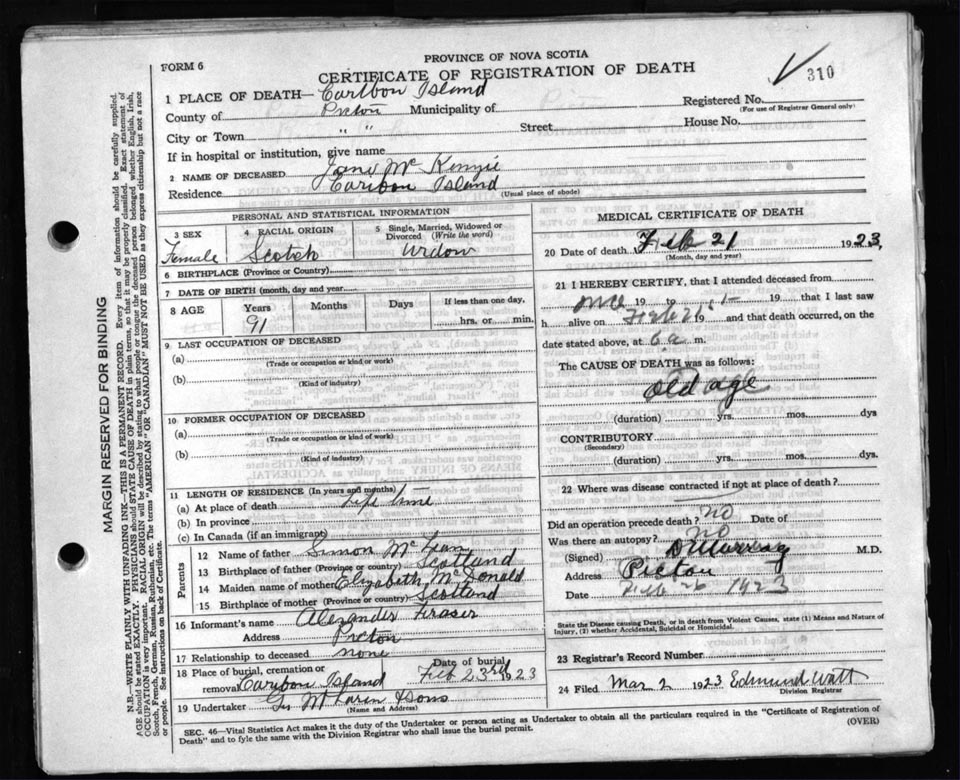 FORM 6
PROVINCE OF NOVA SCOTIA
CERTIFICATE OF REGISTRATION OF DEATH
310
1 PLACE OF DEATH— Caribou Island
County of Pictou Municipality of
Registered No.
(For use of Registrar General only)
City or Town " " Street House No.
If in hospital or institution, give name
2 NAME OF DECEASED Jane McKenzie
Residence Caribou Island
(Usual place of abode)
PERSONAL AND STATISTICAL INFORMATION
3 SEX Female
4 RACIAL ORIGIN Scotch
5 Single, Married, Widowed or Divorced (Write the word) Widow
6 BIRTHPLACE (Province or Country)
7 DATE OF BIRTH (month, day and year)
8 AGE Years 91 Months Days If less than one day, hrs. or min.
9 LAST OCCUPATION OF DECEASED
(a)
(Trade or occupation or kind of work)
(b)
(Kind of industry)
10 FORMER OCCUPATION OF DECEASED
(a)
(Trade or occupation or kind of work)
(b)
(Kind of industry)
11 LENGTH OF RESIDENCE (In years and months)
(a) At place of death Life time
(b) In province
(c) In Canada (if an immigrant)
Parents
12 Name of father Simon
13 Birthplace of father (Province or country) Scotland
14 Maiden name of mother Elizabeth McDonald
15 Birthplace of mother (Province or country) Scotland
16 Informant's name Alexander Fraser
Address Pictou
17 Relationship to deceased none
18 Place of burial, cremation or removal Caribou Island Date of burial Feb 23rd 1923
19 Undertaker & Sons
(Name and Address)
MEDICAL CERTIFICATE OF DEATH
20 Date of death Feb 21 1923,
(Month, day and year)
21 I HEREBY CERTIFY, that I attended deceased from
19 to 19 that I last saw
h alive on 19 and that death occurred, on
date stated above, at 6 a m.
The CAUSE OF DEATH was as follows:
Old age
(duration) yrs. mos. dys
CONTRIBUTORY
(Secondary)
(duration) yrs. mos. dys
22 Where was disease contracted if not at place of death?
Did an operation precede death? no Date of
Was there an autopsy? no
(Signed) Murray M.D.
Address Pictou
Date Feb 1923
State the Disease causing Death, or in death from Violent Causes, state (1) Means and Nature of
Injury, (2) whether Accidental, Suicidal or Homicidal.
23 Registrar's Record Number
24 Filed Mar 2 1923 Edmund Watt
Division Registrar
SEC. 46—Vital Statistics Act makes it the duty of the Undertaker or person acting as Undertaker to obtain all the particulars required in the "Certificate of Registration of
Death" and to fyle the same with the Division Registrar who shall issue the burial permit.
(OVER)
MARGIN RESERVED FOR BINDING
N.B.—WRITE PLAINLY WITH UNFADING INK—THIS IS A PERMANENT RECORD. Every item of information should be carefully supplied.
AGE should be stated EXACTLY. PHYSICIANS should STATE CAUSE OF DEATH in plain terms, so that it may be properly classified. Exact statement of
OCCUPATION is very important. RACIAL ORIGIN will be described by stating to what people or tongue the deceased person belonged whether English, Irish,
Scotch, French, German, Russian, Ruthenian, etc. The terms "AMERICAN" OR "CANADIAN" MUST NOT BE USED as they express citizenship but not a race
or people. See instructions on back of Certificate.